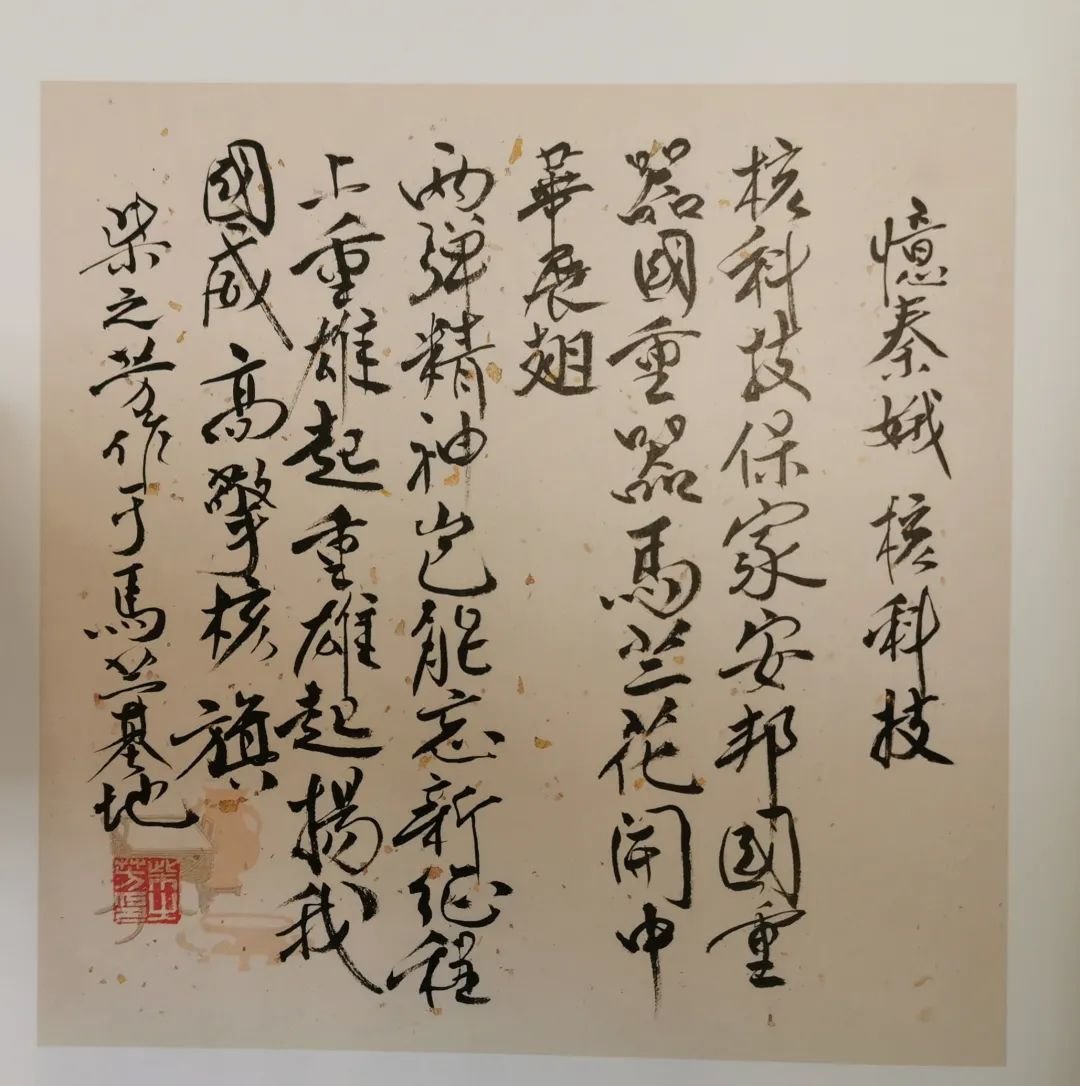 憶秦娥 核科技
核科技保家安邦國重
器國重器馬兰花開中
華展翅
两弹精神岂能忘新征程
上重雄起重雄起揚我
國威高擎核旗
柴之芳作于馬兰基地
柴之芳印